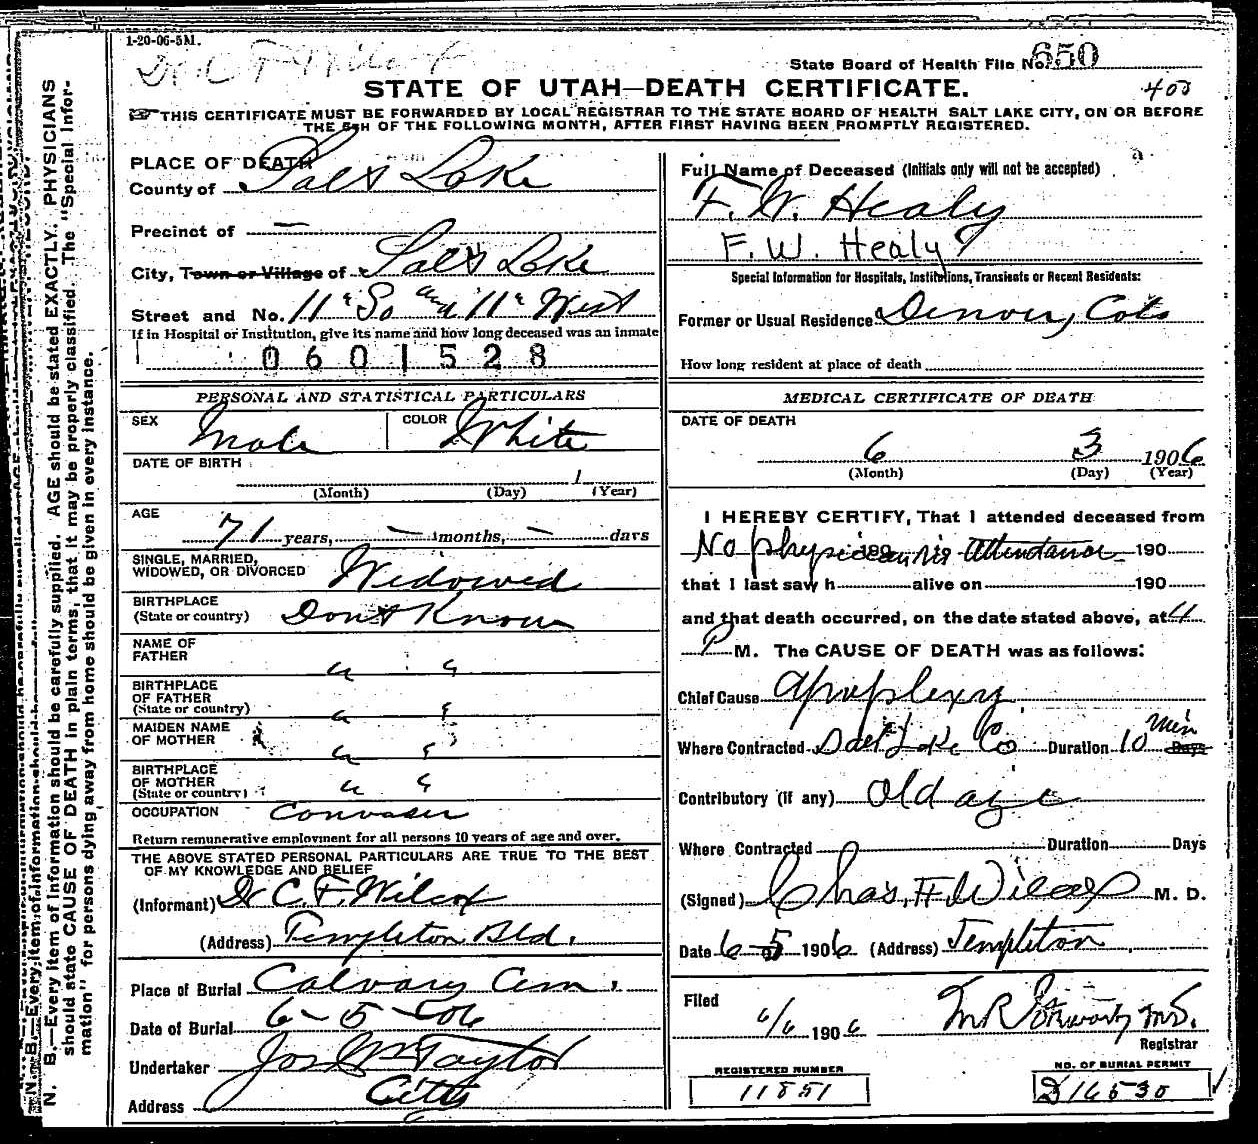 1-20-06-5M.
Dr. C F Wilcox
State Board of Health File No. 650
STATE OF UTAH—DEATH CERTIFICATE.
400
THIS CERTIFICATE MUST BE FORWARDED BY LOCAL REGISTRAR TO THE STATE BOARD OF HEALTH SALT LAKE CITY, ON OR BEFORE
THE 5TH OF THE FOLLOWING MONTH, AFTER FIRST HAVING BEEN PROMPTLY REGISTERED.
N. B.—Every item of information should be carefully supplied. AGE should be stated EXACTLY. PHYSICIANS
should state CAUSE OF DEATH in plain terms, that it may be properly classified. The "Special Infor-
mation" for persons dying away from home should be given in every instance.
PLACE OF DEATH
County of Salt Lake
Precinct of —
City, Town or Village of Salt Lake
Street and No. 11" So and 11" West
If in Hospital or Institution, give its name and how long deceased was an inmate
0601528
PERSONAL AND STATISTICAL PARTICULARS
SEX Male COLOR White
DATE OF BIRTH 1
(Month) (Day) (Year)
AGE
71 years, — months, — days
SINGLE, MARRIED,
WIDOWED, OR DIVORCED Widowed
BIRTHPLACE
(State or country) Dont Know
NAME OF
FATHER " "
BIRTHPLACE
OF FATHER
(State or country) " "
MAIDEN NAME
OF MOTHER " "
BIRTHPLACE
OF MOTHER
(State or country) " "
OCCUPATION Convaser
Return remunerative employment for all persons 10 years of age and over.
THE ABOVE STATED PERSONAL PARTICULARS ARE TRUE TO THE BEST
OF MY KNOWLEDGE AND BELIEF
(Informant) Dr C. F. Wilcox
(Address) Templeton Bld.
Place of Burial Calvary Cem.
Date of Burial 6-5-06
Undertaker Jos Wm Taylor
Address City
Full Name of Deceased (Initials only will not be accepted)
F. W. Healy
F. W. Healy
Special Information for Hospitals, Institutions, Transients or Recent Residents:
Former or Usual Residence Denver, Colo
How long resident at place of death
MEDICAL CERTIFICATE OF DEATH
DATE OF DEATH
6 3 1906
(Month) (Day) (Year)
I HEREBY CERTIFY, That I attended deceased from
No physician in Attendance 190
that I last saw h alive on 190
and that death occurred, on the date stated above, at 4
P M. The CAUSE OF DEATH was as follows:
Chief Cause Apoplexy
Where Contracted Salt Lake Co Duration 10 min Days
Contributory (if any) Old age
Where Contracted Duration Days
(Signed) Chas. F. Wilcox M. D.
Date 6-5 1906 (Address) Templeton
Filed
6/6 1906 M R Stewart M.D.
Registrar
REGISTERED NUMBER
11851
NO. OF BURIAL PERMIT
D16530